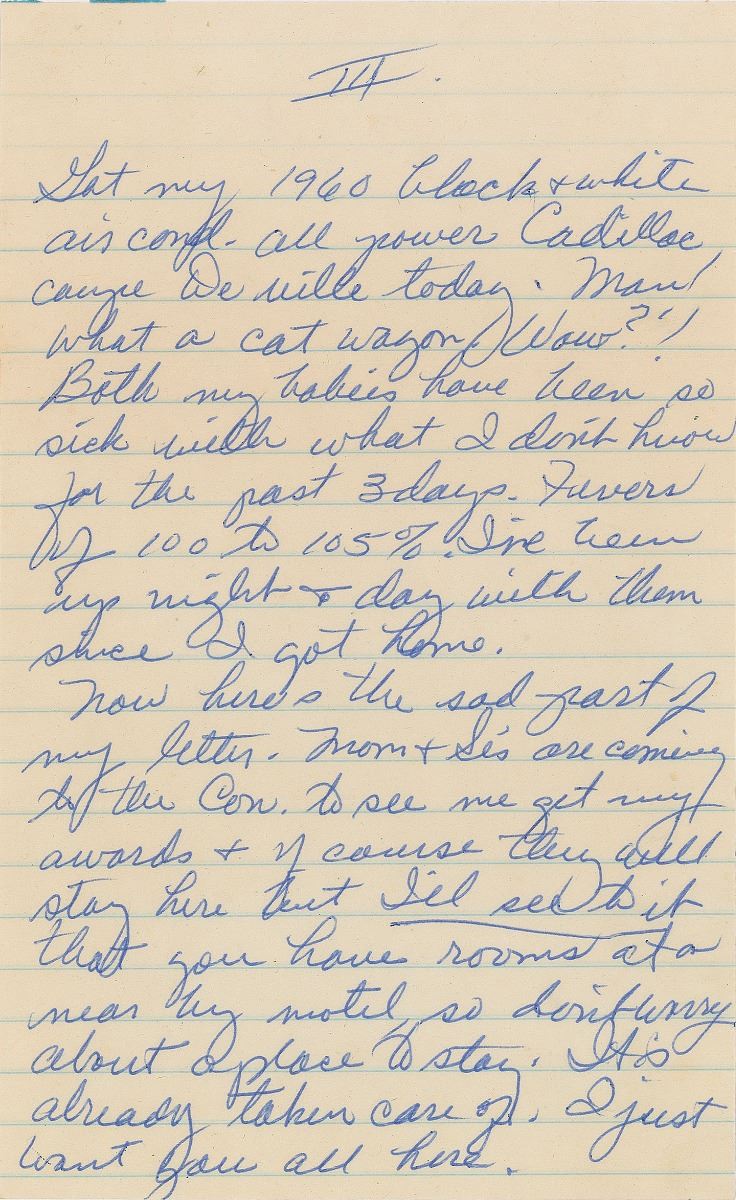 III.
Got my 1960 black & white
air cond. all power Cadillac
coupe De ville today. Man!
what a cat wagon! Wow?!!
Both my babies have been so
sick with what I don't know
for the past 3 days. Fuvers
of 100 to 105%. I've been
up night & day with them
since I got home.
Now here's the sad part of
my letter. Mom & Sis are coming
to the Con. to see me get my
awards & of course they will
stay here but I'll see to it
that you have rooms at a
near by motel, so don't worry
about a place to stay. It's
already taken care of. I just
want you all here.